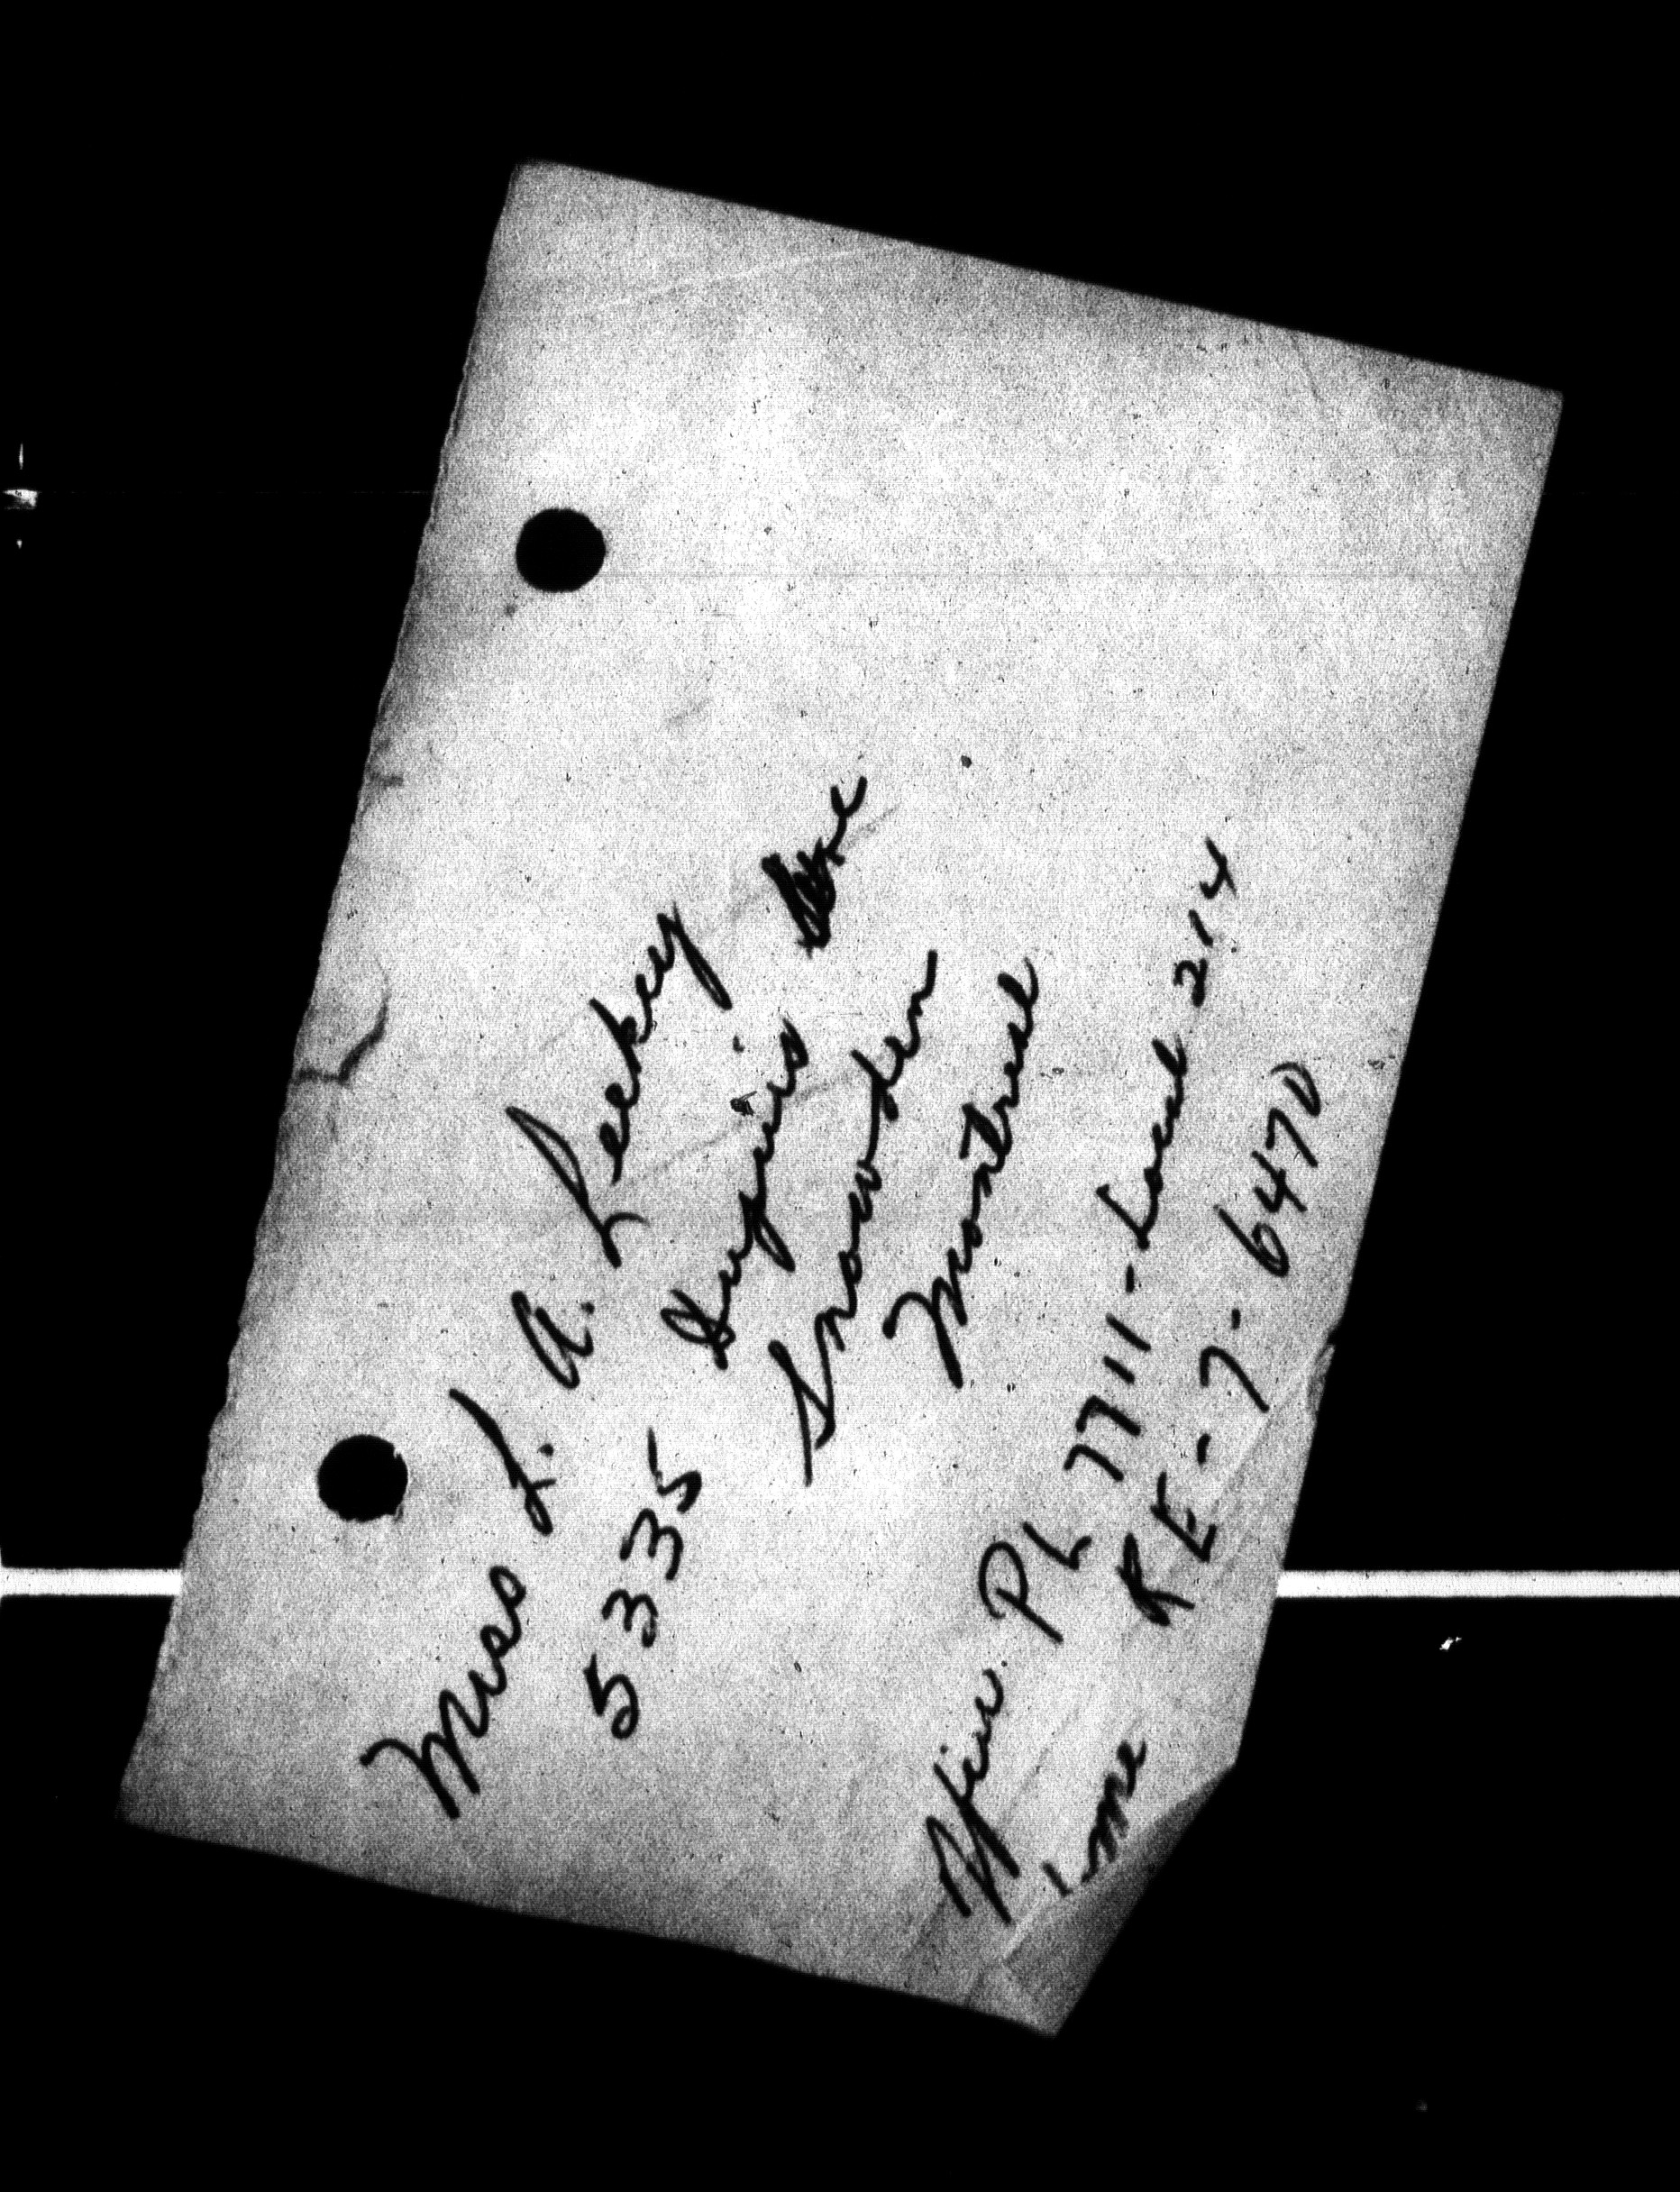 Mrs L. A. Leekey
5335 Ave
Snowden
Montreal
Office PL 7711 - Local 214
RE - 7 - 6470